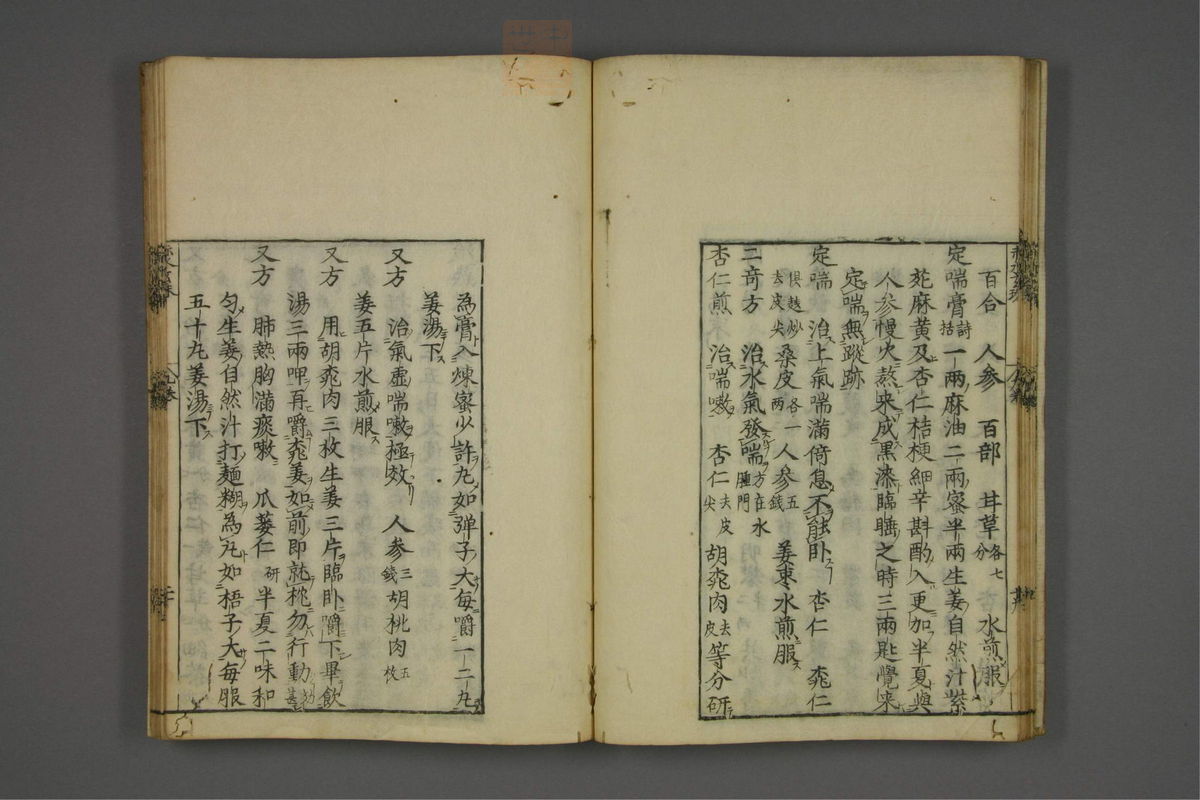 百合 人参 百部 甘草各七分 水煎服
定喘膏詩括 一兩麻油二兩蜜半兩生姜自然汁紫
菀麻黄及杏仁桔梗細辛斟酌入更加半夏與
人参慢火熬来成黒漆臨睡之時三兩匙覺来
定喘無蹤跡
定喘 治上氣喘滿倚息不能卧 杏仁 桃仁
俱麸炒去皮尖 桑皮各一兩 人参五錢 姜枣水煎服
三奇方 治水氣發喘方在水腫門
杏仁煎 治喘嗽 杏仁去皮尖 胡桃肉去皮 等分研
為膏入煉蜜少許丸如弾子大毎嚼一二丸
姜湯下
又方 治氣虚喘嗽極效 人参三錢 胡桃肉五枚
姜五片水煎服
又方 用胡桃肉三枚生姜三片臨卧嚼下畢飲
湯三兩呷再嚼桃姜如前即就枕勿行動
又方 肺熱胸滿痰嗽 瓜蔞仁研 半夏二味和
匀生姜自然汁打麺糊為丸如梧子大毎服
五十丸姜湯下